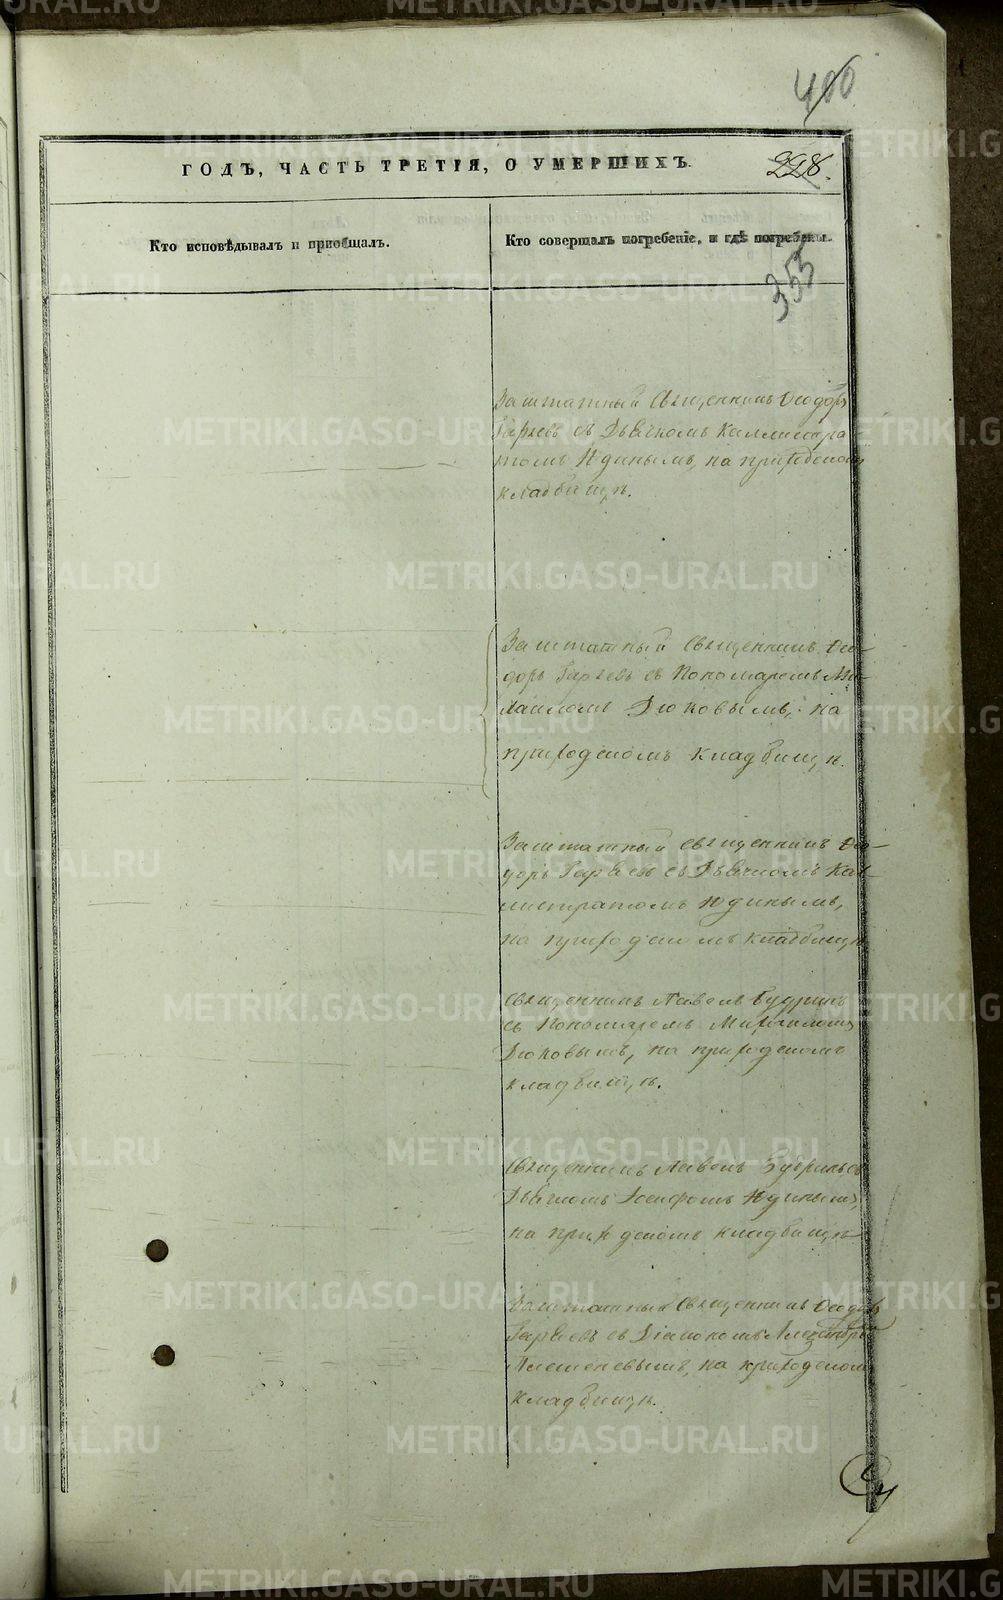 400
ГОДЪ, ЧАСТЬ ТРЕТІЯ, О УМЕРШИХЪ.
228.
Кто исповѣдывалъ и пріобщалъ.
Кто совершалъ погребеніе, и гдѣ погребены.
355
Заштатный Священникъ Ѳеодоръ
съ Дьячкомъ Каллистра
томъ Юдинымъ, на приходскомъ
кладбищѣ.
Заштатный Священникъ Ѳео-
доръ съ Пономаремъ Ми-
хаиломъ Дюковымъ, на
приходскомъ кладбищѣ.
Заштатный Священникъ Ѳео-
доръ съ Дьячкомъ Кал-
листратомъ Юдинымъ,
на приходскомъ кладбищѣ
Священникъ Павелъ Будринъ
съ Пономаремъ Михаиломъ
Дюковымъ, на приходскомъ
кладбищѣ.
Священникъ Павелъ Будринъ съ
Дьячкомъ Іосифомъ Юдинымъ,
на приходскомъ кладбищѣ
Заштатный Священникъ Ѳеодоръ
съ Діакономъ
на приходскомъ
кладбищѣ.
METRIKI.GASO-URAL.RU